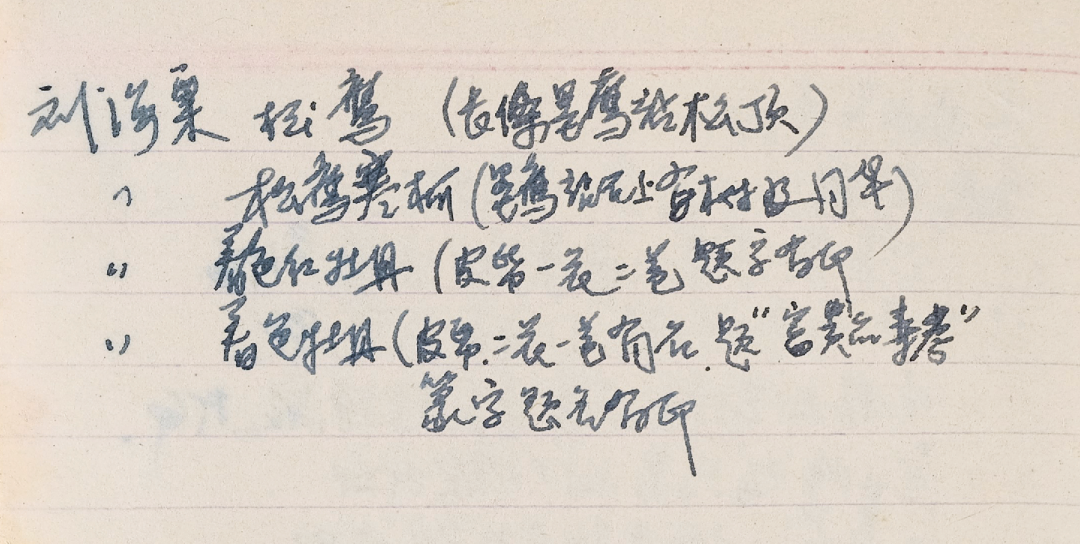 刘海粟 松鹰 (长条墨鹰站松顶)
〃 松鹰寒柯 (墨鹰站石上有松枝及月年)
〃 着色红牡丹 (皮纸一花二苞 题字有印
〃 着色牡丹 (皮纸.二花一苞有石.题"富贵亦寿考"
篆字题名有印